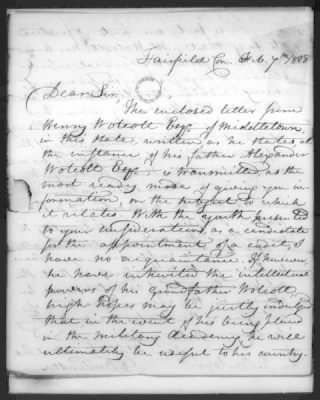 Fairfield Con. Feb. 7th 1828
Dear Sir,
The enclosed letter from
Henry Wolcott Esqr. of Middletown
in this State, written as he states at
the instance of his father Alexander
Wolcott Esqr. is transmitted as the
most ready mode of giving you in-
formation, on the subject to which
it relates. With the youth presented
to your consideration, as a candidate
for the appointment of a cadet, I
have no acquaintance. If however,
he have inherited the intellectual
powers of his grandfather Wolcott,
high hopes may be justly indulged
that in the event of his being placed
in the military Academy, he will
ultimately be useful to his country.